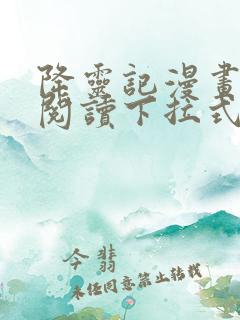 降靈記漫畫
閱讀下拉式
今翡
未经同意禁止转载